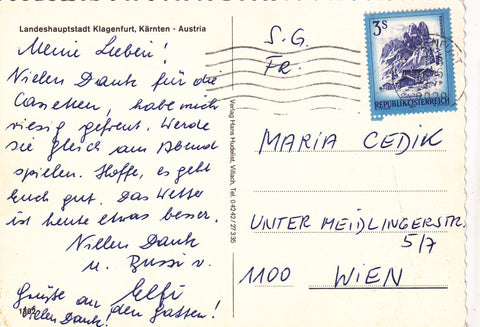 Landeshauptstadt Klagenfurt, Kärnten - Austria
Meine Lieben!
Vielen Dank für die
Casetten, habe mich
riesig gefreut. Werde
sie gleich am Abend
spielen. Hoffe, es geht
Euch gut. Das Wetter
ist heute etwas besser.
Vielen Dank
u. Bussi v.
Elfi
Grüße an den Gatten!
Vielen Dank!
Verlag Hans Hudelist, Villach, Tel. 0 42 42 / 27 3 35
S. G.
FR.
3S
REPUBLIK ÖSTERREICH
MARIA CEDIK
UNTER MEIDLINGERSTR.
5/7
1100 WIEN